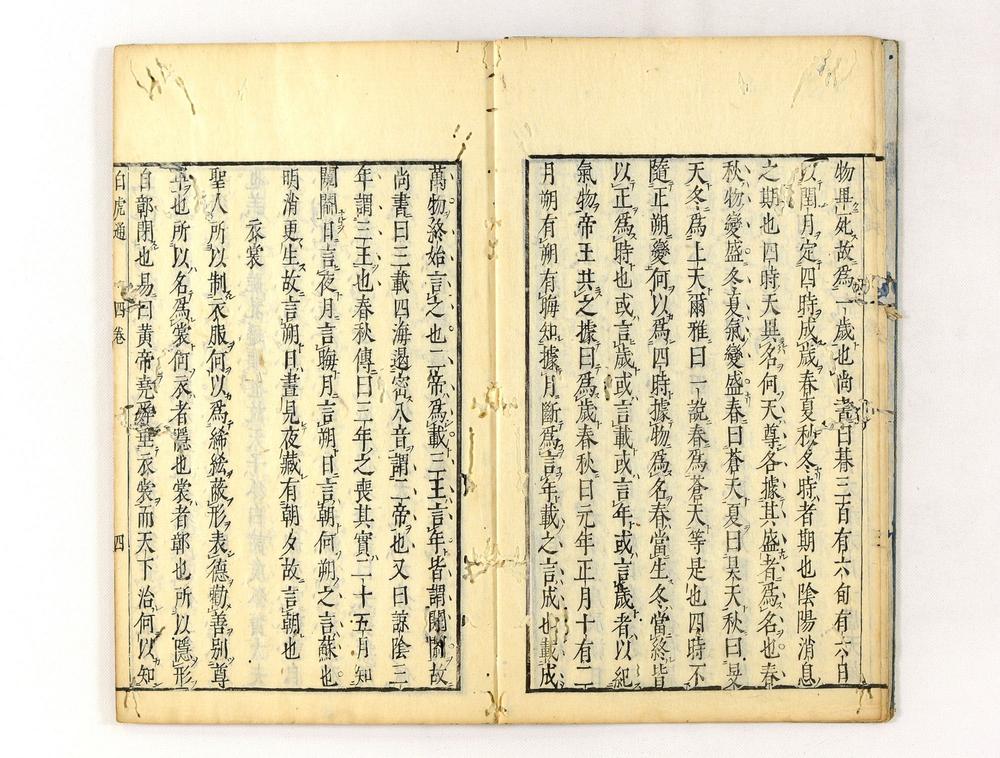 物畢死故爲一歲也尚書曰朞三百有六旬有六日
以閏月定四時成歲春夏秋冬時者期也陰陽消息
之期也四時天異名何天尊各據其盛者爲名也春
秋物變盛冬夏氣變盛春曰蒼天夏曰昊天秋曰旻
天冬爲上天爾雅曰一說春爲蒼天等是也四時不
隨正朔變何以爲四時據物爲名春當生冬當終皆
以正爲時也或言歲或言載或言年或言歲者以紀
氣物帝王共之據日爲歲春秋曰元年正月十有二
月朔有朔有晦知據月斷爲言年載之言成也載成
萬物終始言之也二帝爲載三王言年皆謂闚闚故
尚書曰三載四海遏密八音謂二帝也又曰諒陰三
年謂三王也春秋傳曰三年之喪其實二十五月知
闚闚日言夜月言晦月言朔日言朝何朔之言蘇也
明消更生故言朔日晝見夜藏有朝夕故言朝也
衣裳
聖人所以制衣服何以爲絺綌蔽形表德勸善别尊
也所以名爲裳何衣者隱也裳者鄣也所以隱形
自鄣閉也易曰黄帝堯舜垂衣裳而天下治何以知
白虎通 四卷 四